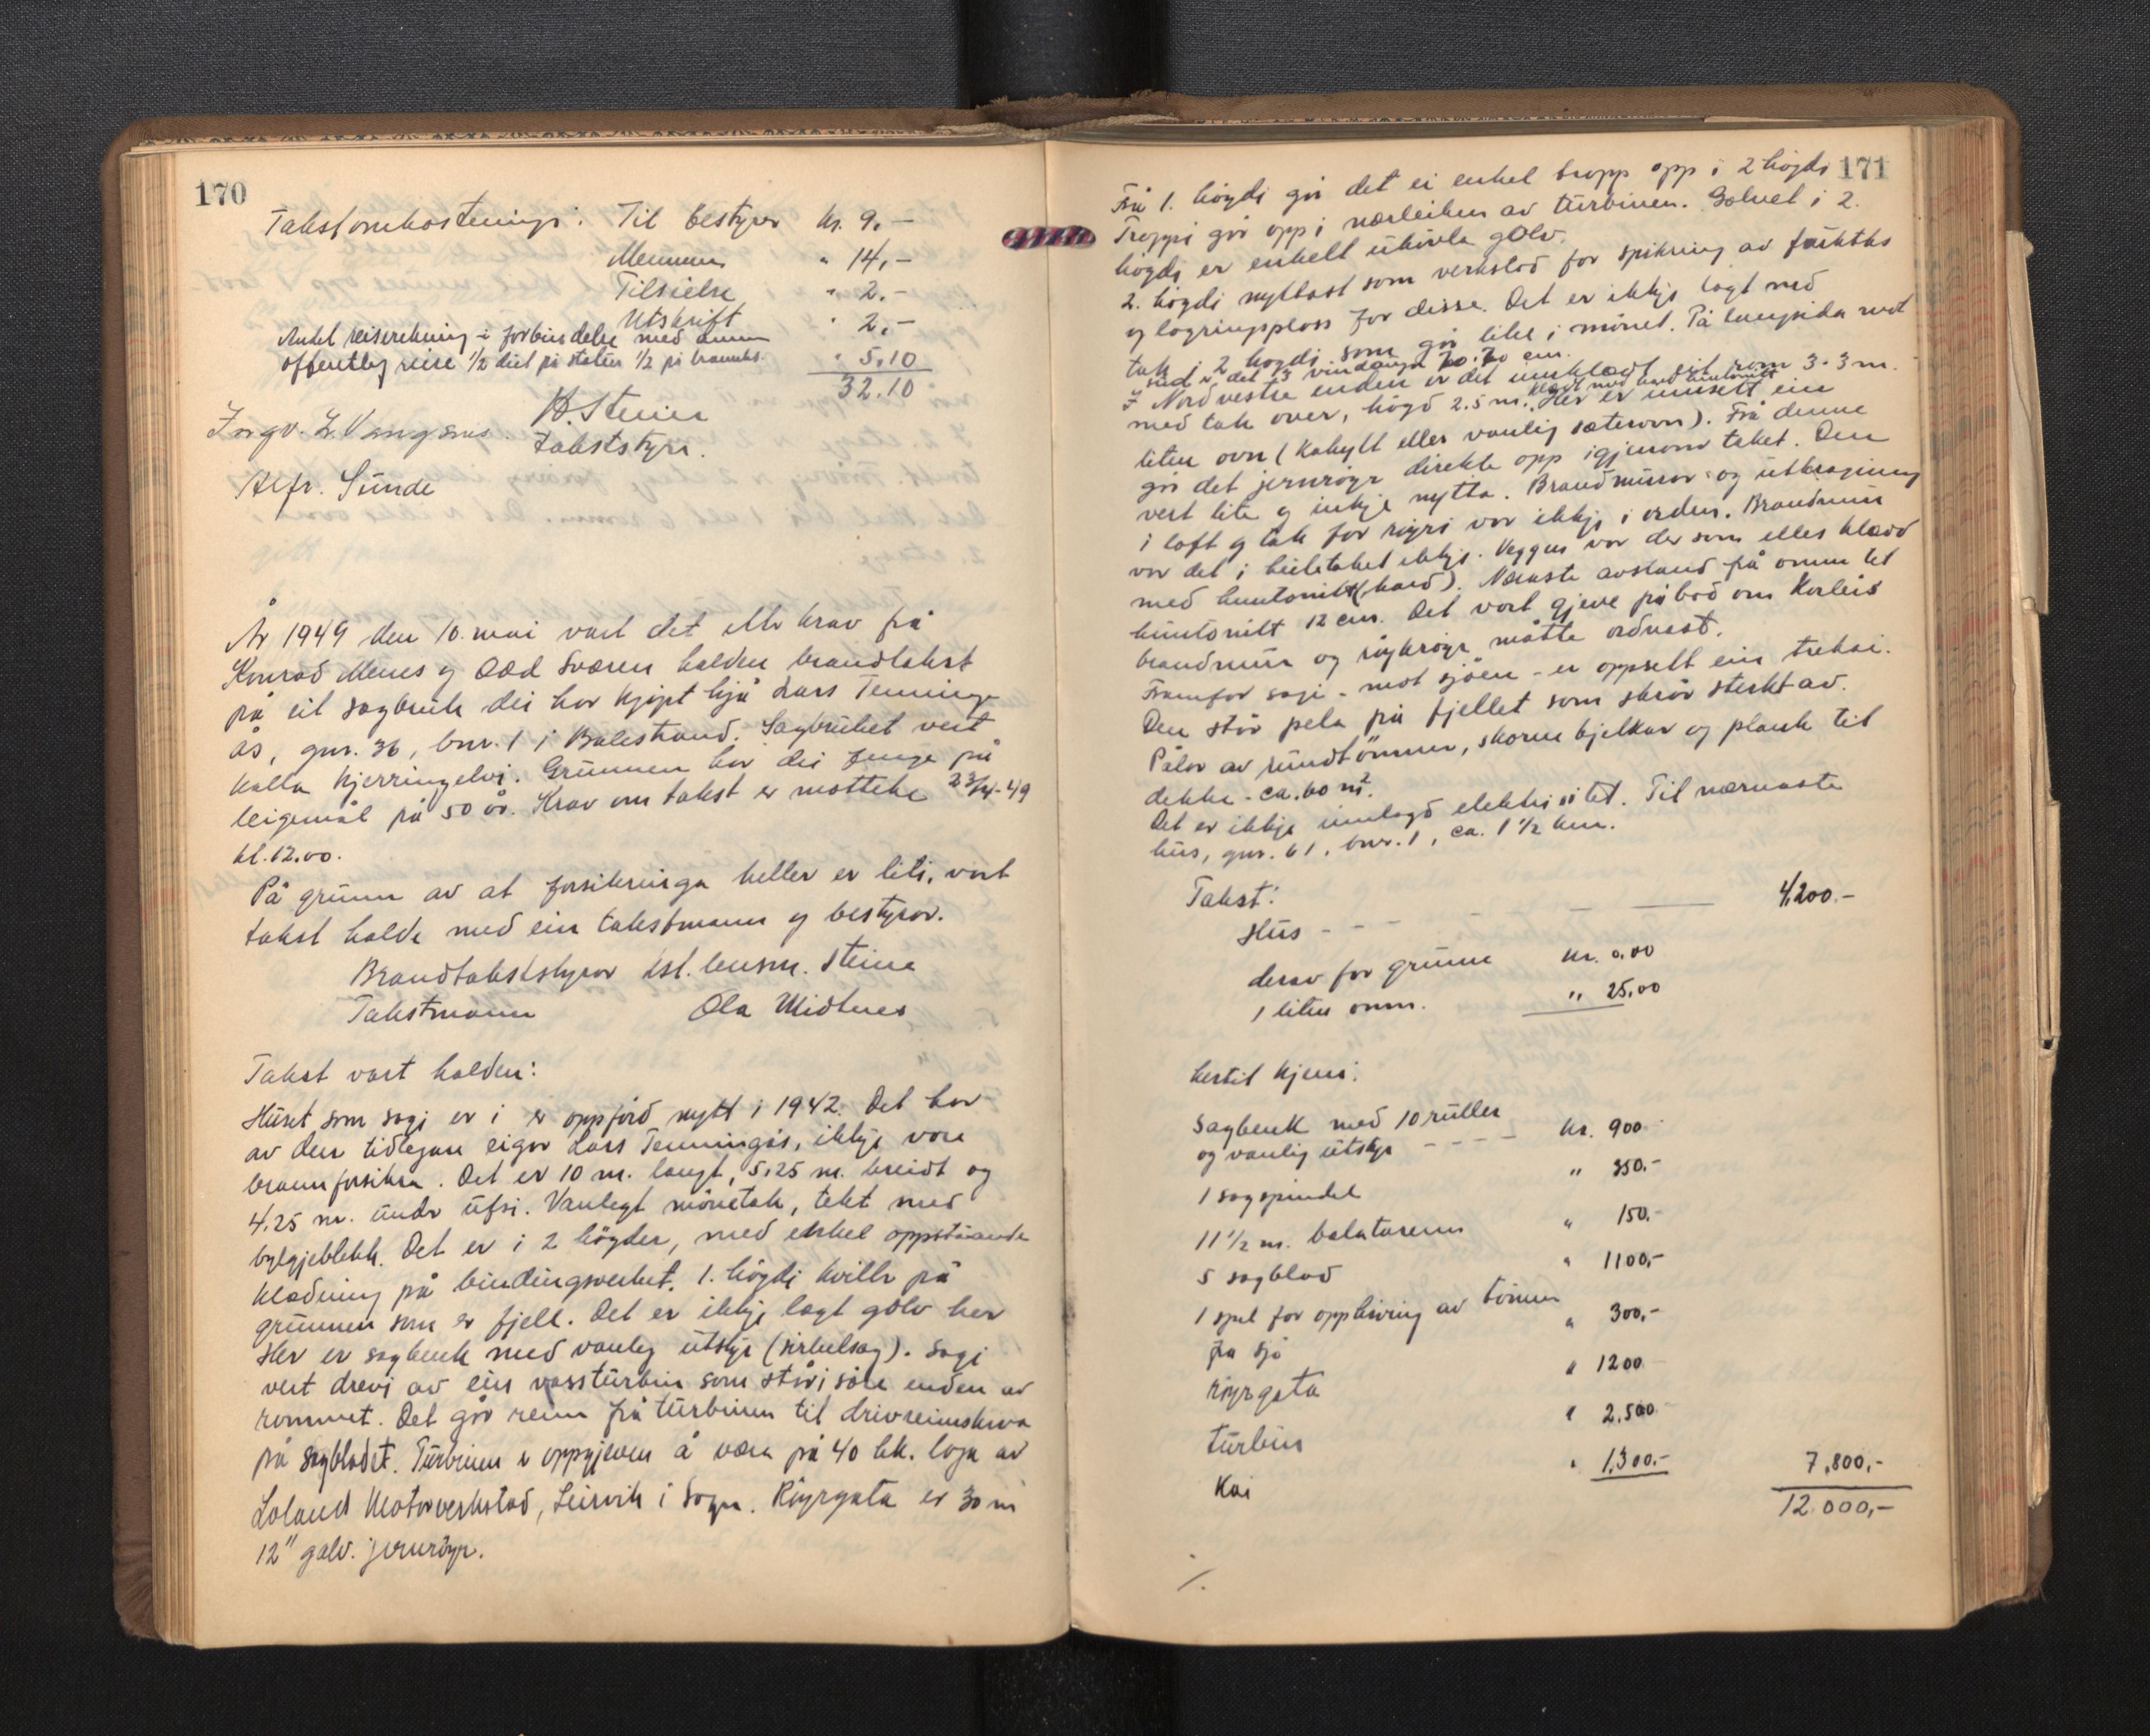 170
Takstomkostningi: Til bestyrer kr. 9.-
Mennene " 14,-
Tilsielse " 2.-
Utskrift " 2,-
Antel reiserekning i forbindelse med annen
offentleg reise 1/2 delt på staten 1/2 på brannks. " 5.10
32.10
H. Steine
Takststyrar.
Ingv. L. Vangsnes.
Alfr. Sunde
År 1949 den 10. mai vart det etter krav frå
Konrad Menes og Odd Sværen halden brandtakst
på eit sagbruk dei har kjøpt hjå Lars Tenninge
ås, gnr. 36, bnr. 1 i Balestrand. Sagbruket vert
kalla Kjerringelvi. Grunnen har dei fenge på
leigemål på 50 år. Krav om takst er motteke 23/4-49
kl. 12.00.
På grunn av at forsikringa heller er liti, vart
takst halde med ein takstmann og bestyrar.
Brandtakststyrar kst. lensm. Steine
Takstmann Ola Midtnes
Takst vart halden:
Huset som sagi er i er oppførd nytt i 1942. Det har
av den tidlegare eigar Lars Tenningås, ikkje vore
brannforsikra. Det er 10 m. langt, 5,25 m. breidt og
4,25 m. under ufsi. Vanlegt mønetak, tekt med
bylgjeblekk. Det er i 2 høgder, med enkel oppståande
klædning på bindingsverket. 1. høgdi kviler på
grunnen som er fjell. Det er ikkje lagt golv her
Her er sagbenk med vanleg utstyr (sirkelsag). Sagi
vert drevi av ein vassturbin som står i søre enden av
rommet. Det går reim frå turbinen til drivreimskiva
på sagbladet. Turbinen er oppgjeven å vera på 40 hk. laga av
Løland Motorverkstad, Leirvik i Sogn. Røyrgata er 30 m
12" galv. jernrøyr.
171
Frå 1. høgdi går det ei enkel tropp opp i 2 høgdi
Troppi går opp i nærleiken av turbinen. Golvet i 2.
høgdi er enkelt uhøvla golv.
2. høgdi nyttast som verkstad for spikring av fiskeks
og lagringsplass for disse. Det er ikkje lagt med
tak i 2 høgdi som går like i mønet. På langsida mot
sud er det 3 vindaugo 70.70 cm.
I Nordvestre enden er det innklædt eit rom 3.3 m.
med tak over, høgd 2.5 m. klædt med hard huntonitt Her er innsett ein
liten ovn (Kahytt eller vanlig sæterovn). Frå denne
går det jernrøyr direkte opp igjenom taket. Den
vert lite og inkje nytta. Brandmurar og utkraging
i loft og tak for røyri var ikkje i orden. Brandmur
var det i heiletaket ikkje. Veggen var der som elles klædd
med huntonitt (hard). Næraste avstand frå omnen til
huntonitt 12 cm. Det vart gjeve påbod om korleis
brandmur og røykrøyr måtte ordnast.
Framfor sagi - mot sjøen - er oppsett ein trekai.
Den står pela på fjellet som skrår sterkt av.
Pålar av rundtømmer, skorne bjelkar og plank til
dekke - ca. 60 m².
Det er ikkje innlagd elektrisitet. Til nærmaste
hus, gnr. 61, bnr. 1, ca. 1 1/2 km.
Takst:
Hus - - - 4,200.-
derav for grunn kr. 0,00
1 liten omn. " 25,00
hertil kjem:
Sagbenk med 10 ruller
og vanlig utstyr - - - - kr. 900
1 sagspindel " 350.-
11 1/2 m. balatareim " 150.-
5 sagblad " 1100,-
1 spel for oppheiving av tømmer
fra sjø " 300,-
røyrgata " 1200
turbin " 2.500
Kai " 1,300.- 7,800,-
12.000,-
/.